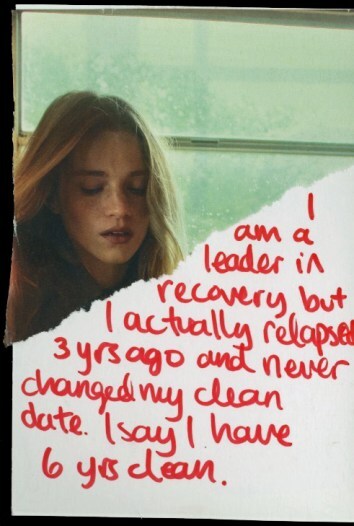 I
am a
leader in
recovery but
I actually relapsed
3 yrs ago and never
changed my clean
date. I say I have
6 yrs clean.